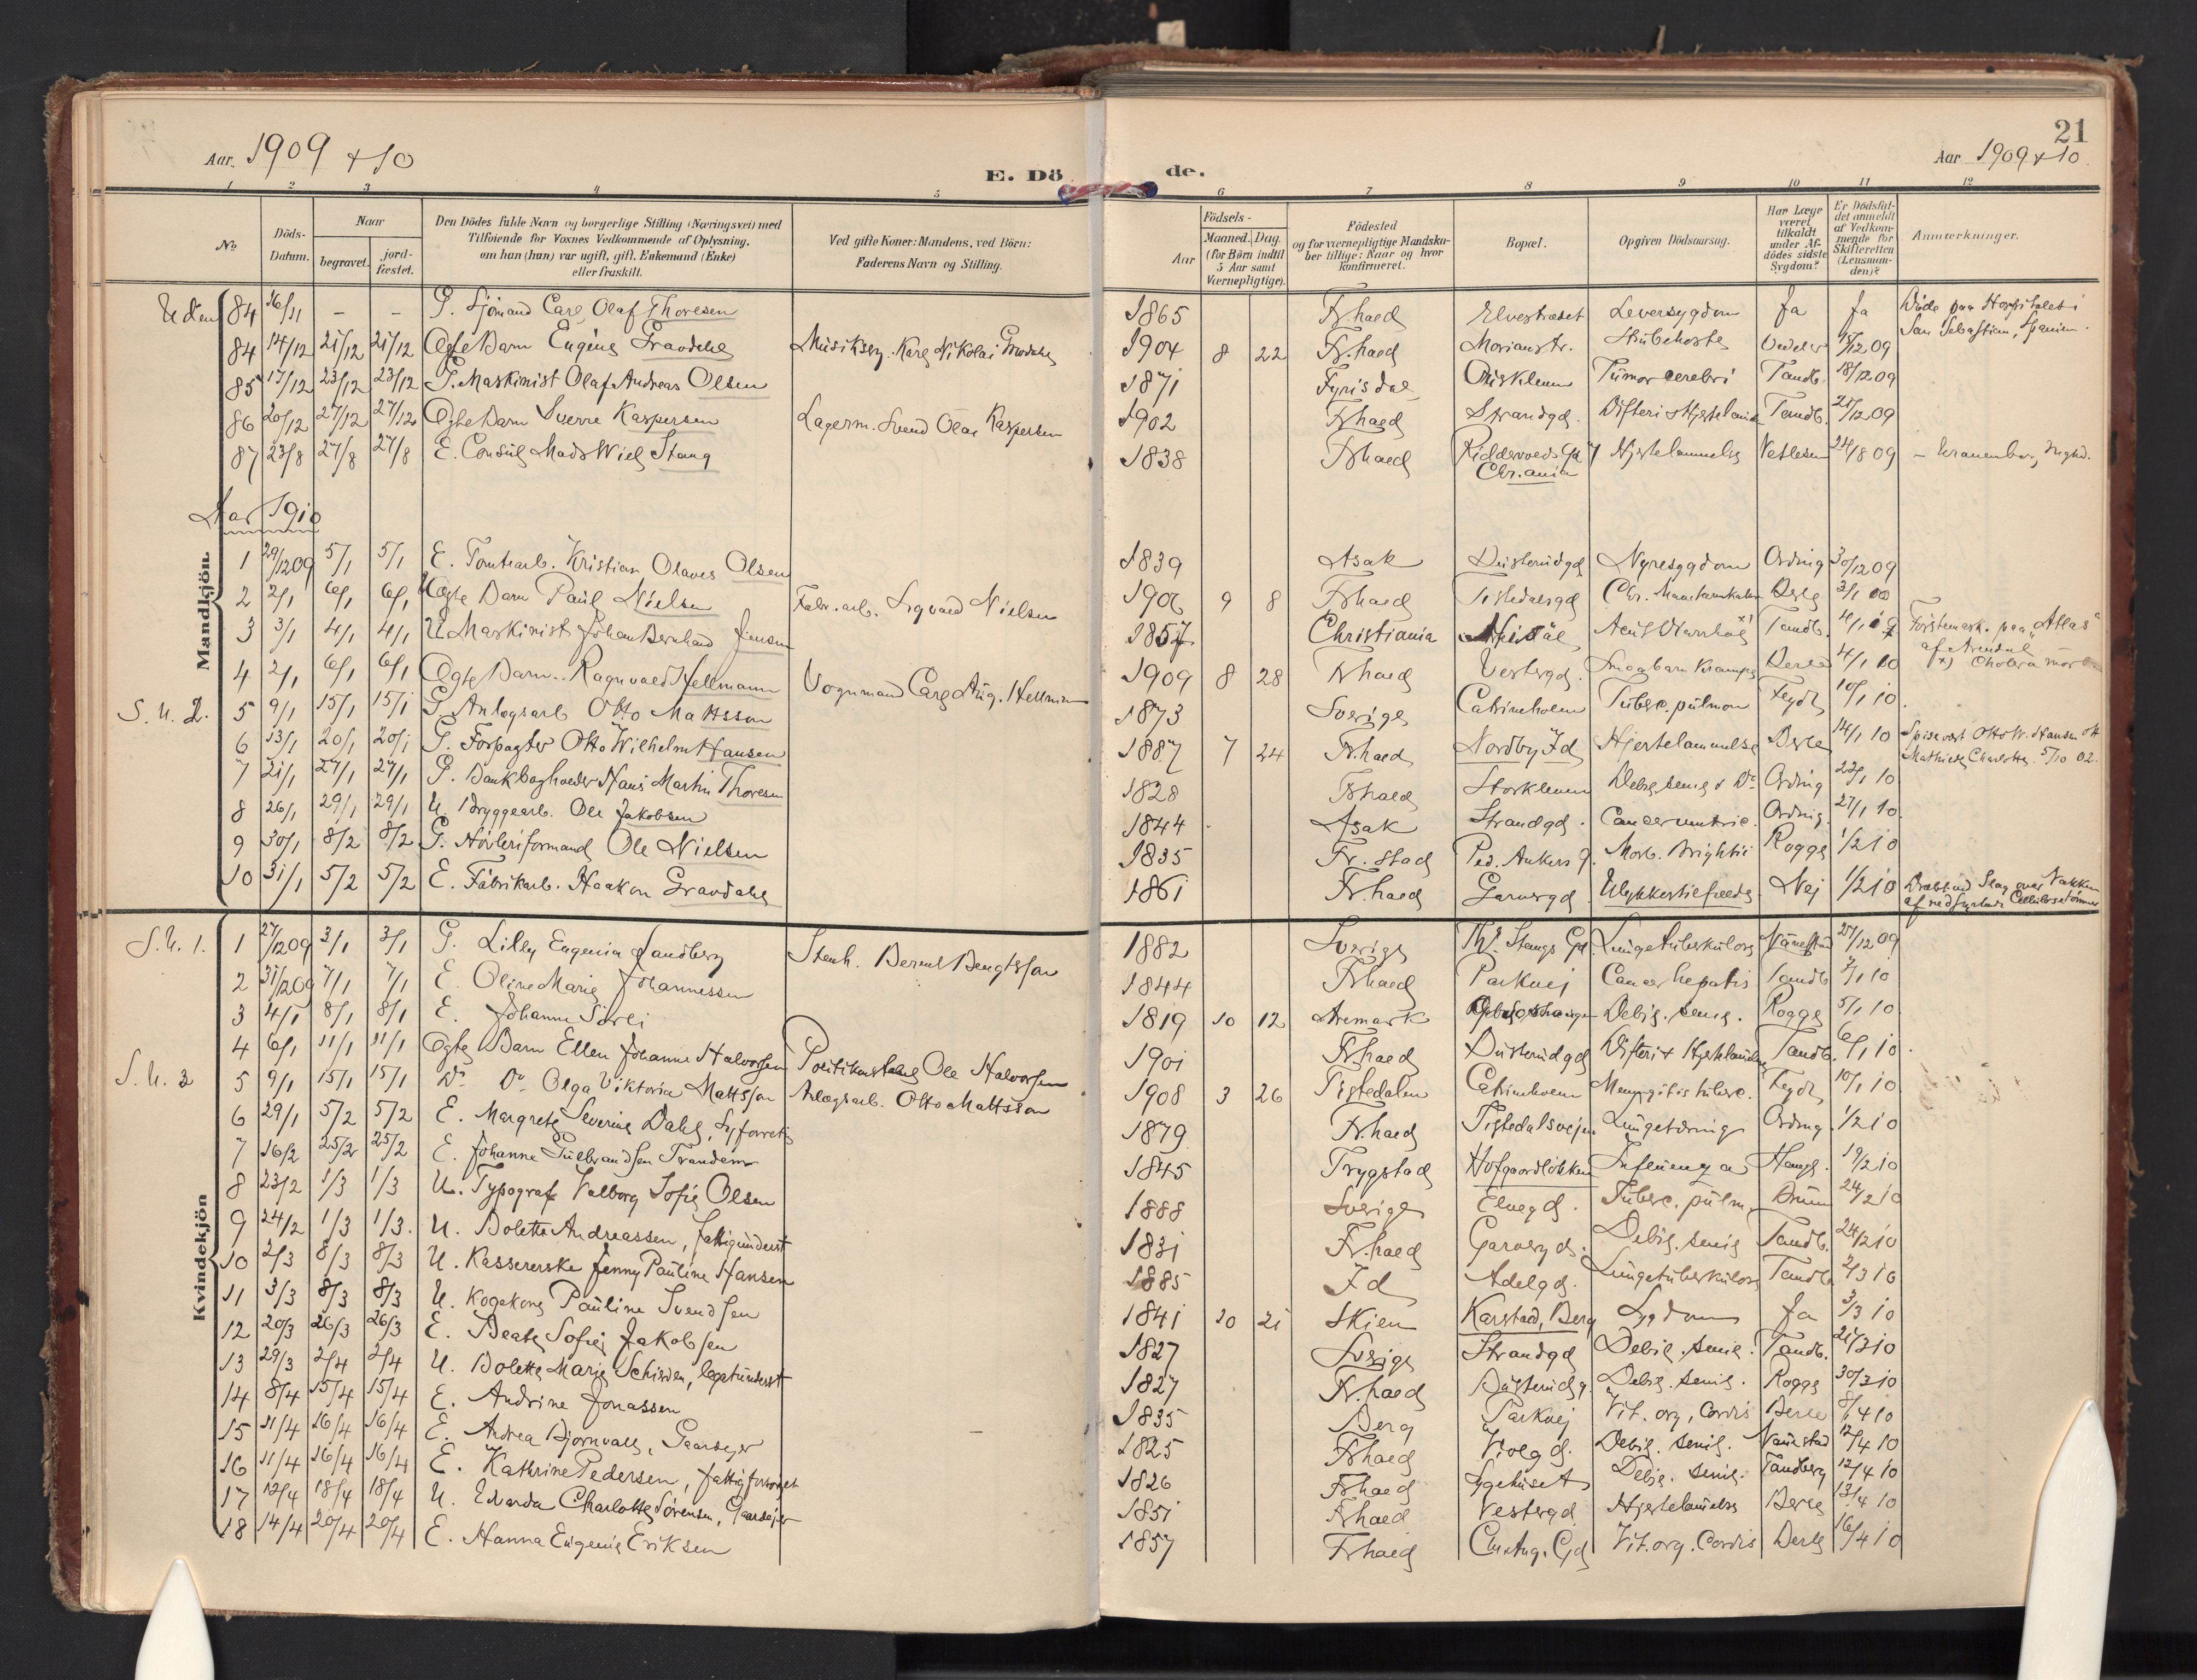 21
Aar. 1909 + 10
Aar 1909 + 10.
E. Dö de.
1 2 3 4 5 6 7 8 9 10 11 12
No
Döds-Datum.
Naar
begravet. jord-fæstet.
Den Dödes fulde Navn og borgerlige Stilling (Næringsvei) med
Tilføiende for Voxnes Vedkommende af Oplysning,
om han (hun) var ugift, gift, Enkemand (Enke)
eller fraskilt.
Ved gifte Koner: Mandens, ved Börn:
Faderens Navn og Stilling.
Födsels-
Aar Maaned. Dag.
(for Börn indtil
5 Aar samt
Værnepligtige).
Födested
og for værnepligtige Mandska-
ber tillige: Naar og hvor
konfirmeret.
Bopæl.
Opgiven Dödsaarsag.
Har Læge
været
tilkaldt
under Af-
dödes sidste
Sygdom?
Er Dödsfal-
det anmeldt
af Vedkom-
mende for
Skifteretten
(Lensman-
den)?
Anmærkninger.
Uden 84 16/11 – – G. Sjömand Carl Olaf Thoresen 1865 Fr.hald Elvestrædet Leversygdom Ja Ja Döde paa Hospitalet i
San Sebastian, Spanien.
84 14/12 21/12 21/12 Ægte Barn Eugenie Gravdahl Musiksg. Karl Nikolai Gravdahl 1904 8 22 Fr.hald Morianstr. Strubehoste 09
85 17/12 23/12 23/12 G. Maskinist Olaf Andreas Olsen 1871 Fyrisdal Tumor cerebri Tandb. 18/12 09
86 20/12 27/12 27/12 Ægte Barn Sverre Kaspersen Lagerm. Svend Olai Kaspersen 1902 Fr.hald Strandgd. Difteri + Hjertelam Tandb. 21/12 09
87 23/8 27/8 27/8 E. Consul Mads Wiel Stang 1838 Fr.hald Chr.ania Hjertelammelse Vetlesen 24/8 09
Aar 1910
Mandkjön.
1 29/12 09 5/1 5/1 E. Tomtearb. Kristian Olaves Olsen 1839 Asak Nyresygdom Ording 30/12 09
2 2/1 6/1 6/1 Ægte Barn Paul Nielsen Fabr. arb. Sigvard Nielsen 1906 9 8 Fr.hald Tistedalsgd Berle 3/1
3 3/1 4/1 4/1 U. Maskinist Johan Bernhard Jensen 1857 Christiania Acut Diarrhoe x) Tandb. 4/1 Förstemask. paa "Atlas"
af Arendal
x) Cholera
4 2/1 6/1 6/1 Ægte Barn Ragnvald Hellmann Vognmand Carl Aug. Hellmann 1909 8 28 Fr.hald Vestergd. Smaabarn Krampe Berle 4/1 10
S. U. 2. 5 9/1 15/1 15/1 G. Anlægsarb. Otto Mattsson 1873 Sverige Catrineholm Tuberc. pulmon Fejdt 10/1 10.
6 13/1 20/1 20/1 G. Forpagter Otto Wilhelm Hansen 1887 7 24 Fr.hald Nordby Id Hjertelammelse Berle 14/1 10 Otto W. Hansen
Mathilde Charlotte 5/10 02.
7 21/1 27/1 27/1 G. Bankbogholder Hans Martin Thoresen 1828 Fr.hald Storkleven Ording 22/1 10
8 26/1 29/1 29/1 U. Bryggearb. Ole Jakobsen 1844 Asak Strandgd. Cancer ventric. Ording. 27/1 10.
9 30/1 8/2 8/2 G. Hövleriformand Ole Nielsen 1835 Fr.stad Ped. Ankers g. Morb. Brightii Rogge 1/2 10
10 31/1 5/2 5/2 E. Fabrikarb. Haakon Gravdahl 1861 Fr.hald Garvergd Ulykkestilfælde Nej 1/2 10 Dræbt ved Slag over Nakken
af Cellulosetömmer
Kvindekjön
S. U. 1. 1 27/12 09 3/1 3/1 G. Lilly Eugenia Sandberg Stenh. Bernt Bengtsson 1882 Sverige Th. Stangs Gd. Lungetuberkulose 27/12 09
2 31/12 09 7/1 7/1 E. Oline Marie Johannessen 1844 Fr.hald Parkvej Cancer hepatis Tandb. 2/1 10
3 4/1 8/1 8/1 E. Johanne Sörli 1819 10 12 Aremark Debil. senil. Rogge 5/1 10.
4 6/1 11/1 11/1 Ægte Barn Ellen Johanne Halvorsen Politikonstabel Ole Halvorsen 1901 Fr.hald Difteri + Hjertelammelse Tandb. 6/1 10.
S. U. 2 5 9/1 15/1 15/1 Do Do Olga Viktoria Mattsson Anlægsarb. Otto Mattsson 1908 3 26 Tistedalen Catrineholm Meningitis tuberc. Fejdt 10/1 10
6 29/1 5/2 5/2 E. Margrete Severine Dahl, Syforretn 1879 Fr.hald Tistedalsvejen Lungetæring Ording 1/2 10
7 16/2 25/2 25/2 E. Johanne Gulbrandsen Trandem 1845 Trygstad Hofgaardlökken Influenza Haugl. 19/2 10
8 23/2 1/3 1/3 U. Typograf Valborg Sofie Olsen 1888 Sverige Elvegd. Tuberc. pulm. Bruun 24/2 10
9 24/2 1/3 1/3. U. Bolette Andreassen, fattigunderst 1831 Fr.hald Garvergd. Debil. senil Tandb. 24/2 10
10 2/3 8/3 8/3 U. Kassererske Jenny Pauline Hansen 1885 Id Adelgd. Lungetuberkulose Tandb 2/3 10
11 3/3 8/3 8/3 U. Kogekone Pauline Svendsen 1841 20 21 Skien Karstad, Berg Sygdom Ja 3/3 10
12 20/3 26/3 26/3 E. Beate Sofie Jakobsen 1827 Sverige Strandgd Debil. senil. Tandb. 21/3 10
13 29/3 2/4 2/4 U. Bolette Marie Schiven, legatunderst 1827 Fr.hald Debil. senil. Rogge 30/3 10
14 8/4 15/4 15/4 E. Andrine Jonassen 1835 Berg Parkvej Vit. org. Cordis Berle 8/4 10
15 11/4 16/4 16/4 E. Andrea Bjornvall, Gaardejer – 1825 Fr.hald Debil. senil. 12/4 10
16 11/4 16/4 16/4 E. Kathrine Pedersen, fattigforsörget 1826 Fr.hald Sygehuset Debil. senil. Tandberg 12/4 10
17 12/4 18/4 18/4 U. Edvarda Charlotte Sörensen, Gaardejer 1851 Fr.hald Vestergd Hjertelammelse Berle 13/4 10
18 14/4 20/4 20/4 E. Hanna Eugenie Eriksen 1857 Fr.hald Chr. Aug. Gd Vit. org. Cordis Berle 16/4 10